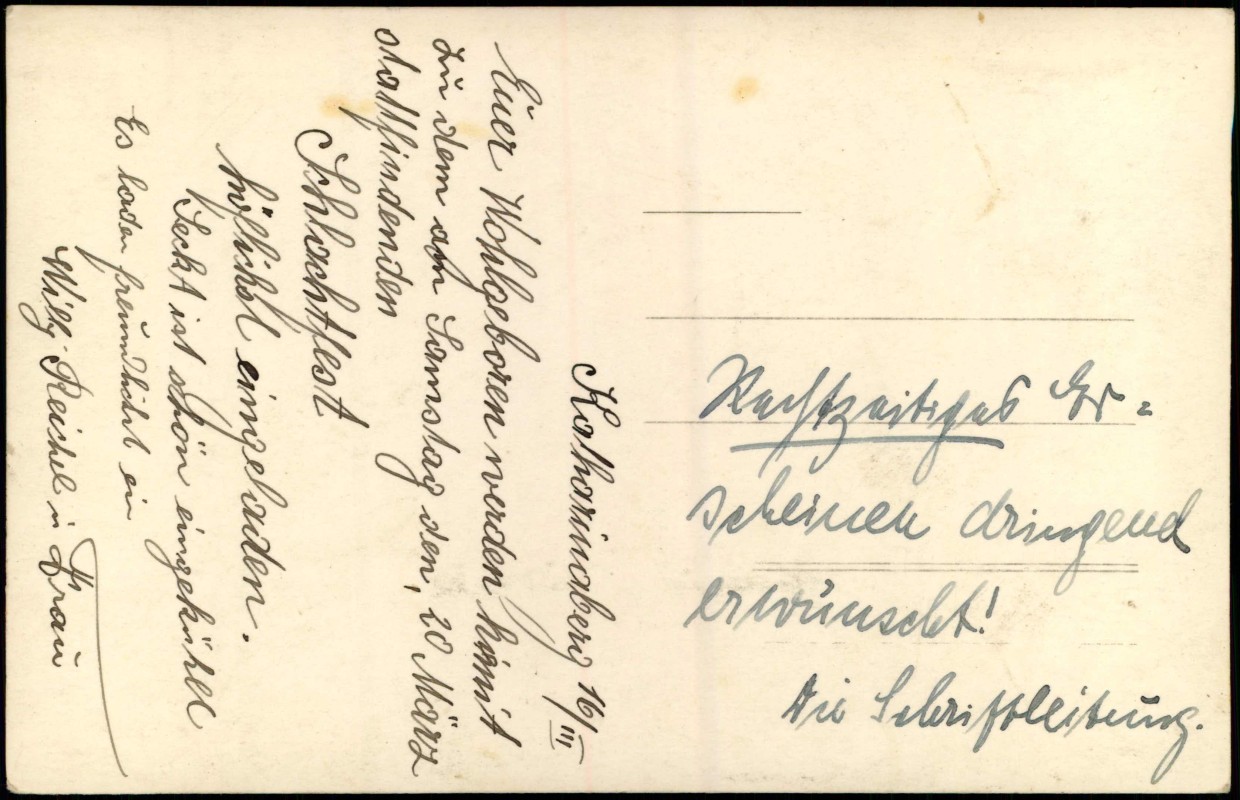 Katharinaberg 16/III
Euer Wohlgeboren werden hiemit
zu dem am Samstag den, 20 März
stattfindenden
Schlachtfest
höflichst eingeladen.
Seckt ist schön eingekühlt
Es laden freundlichst ein
Willy Reichel u Frau
Rechtzeitiges Er=
scheinen dringend
erwünscht!
Die Schriftleitung.